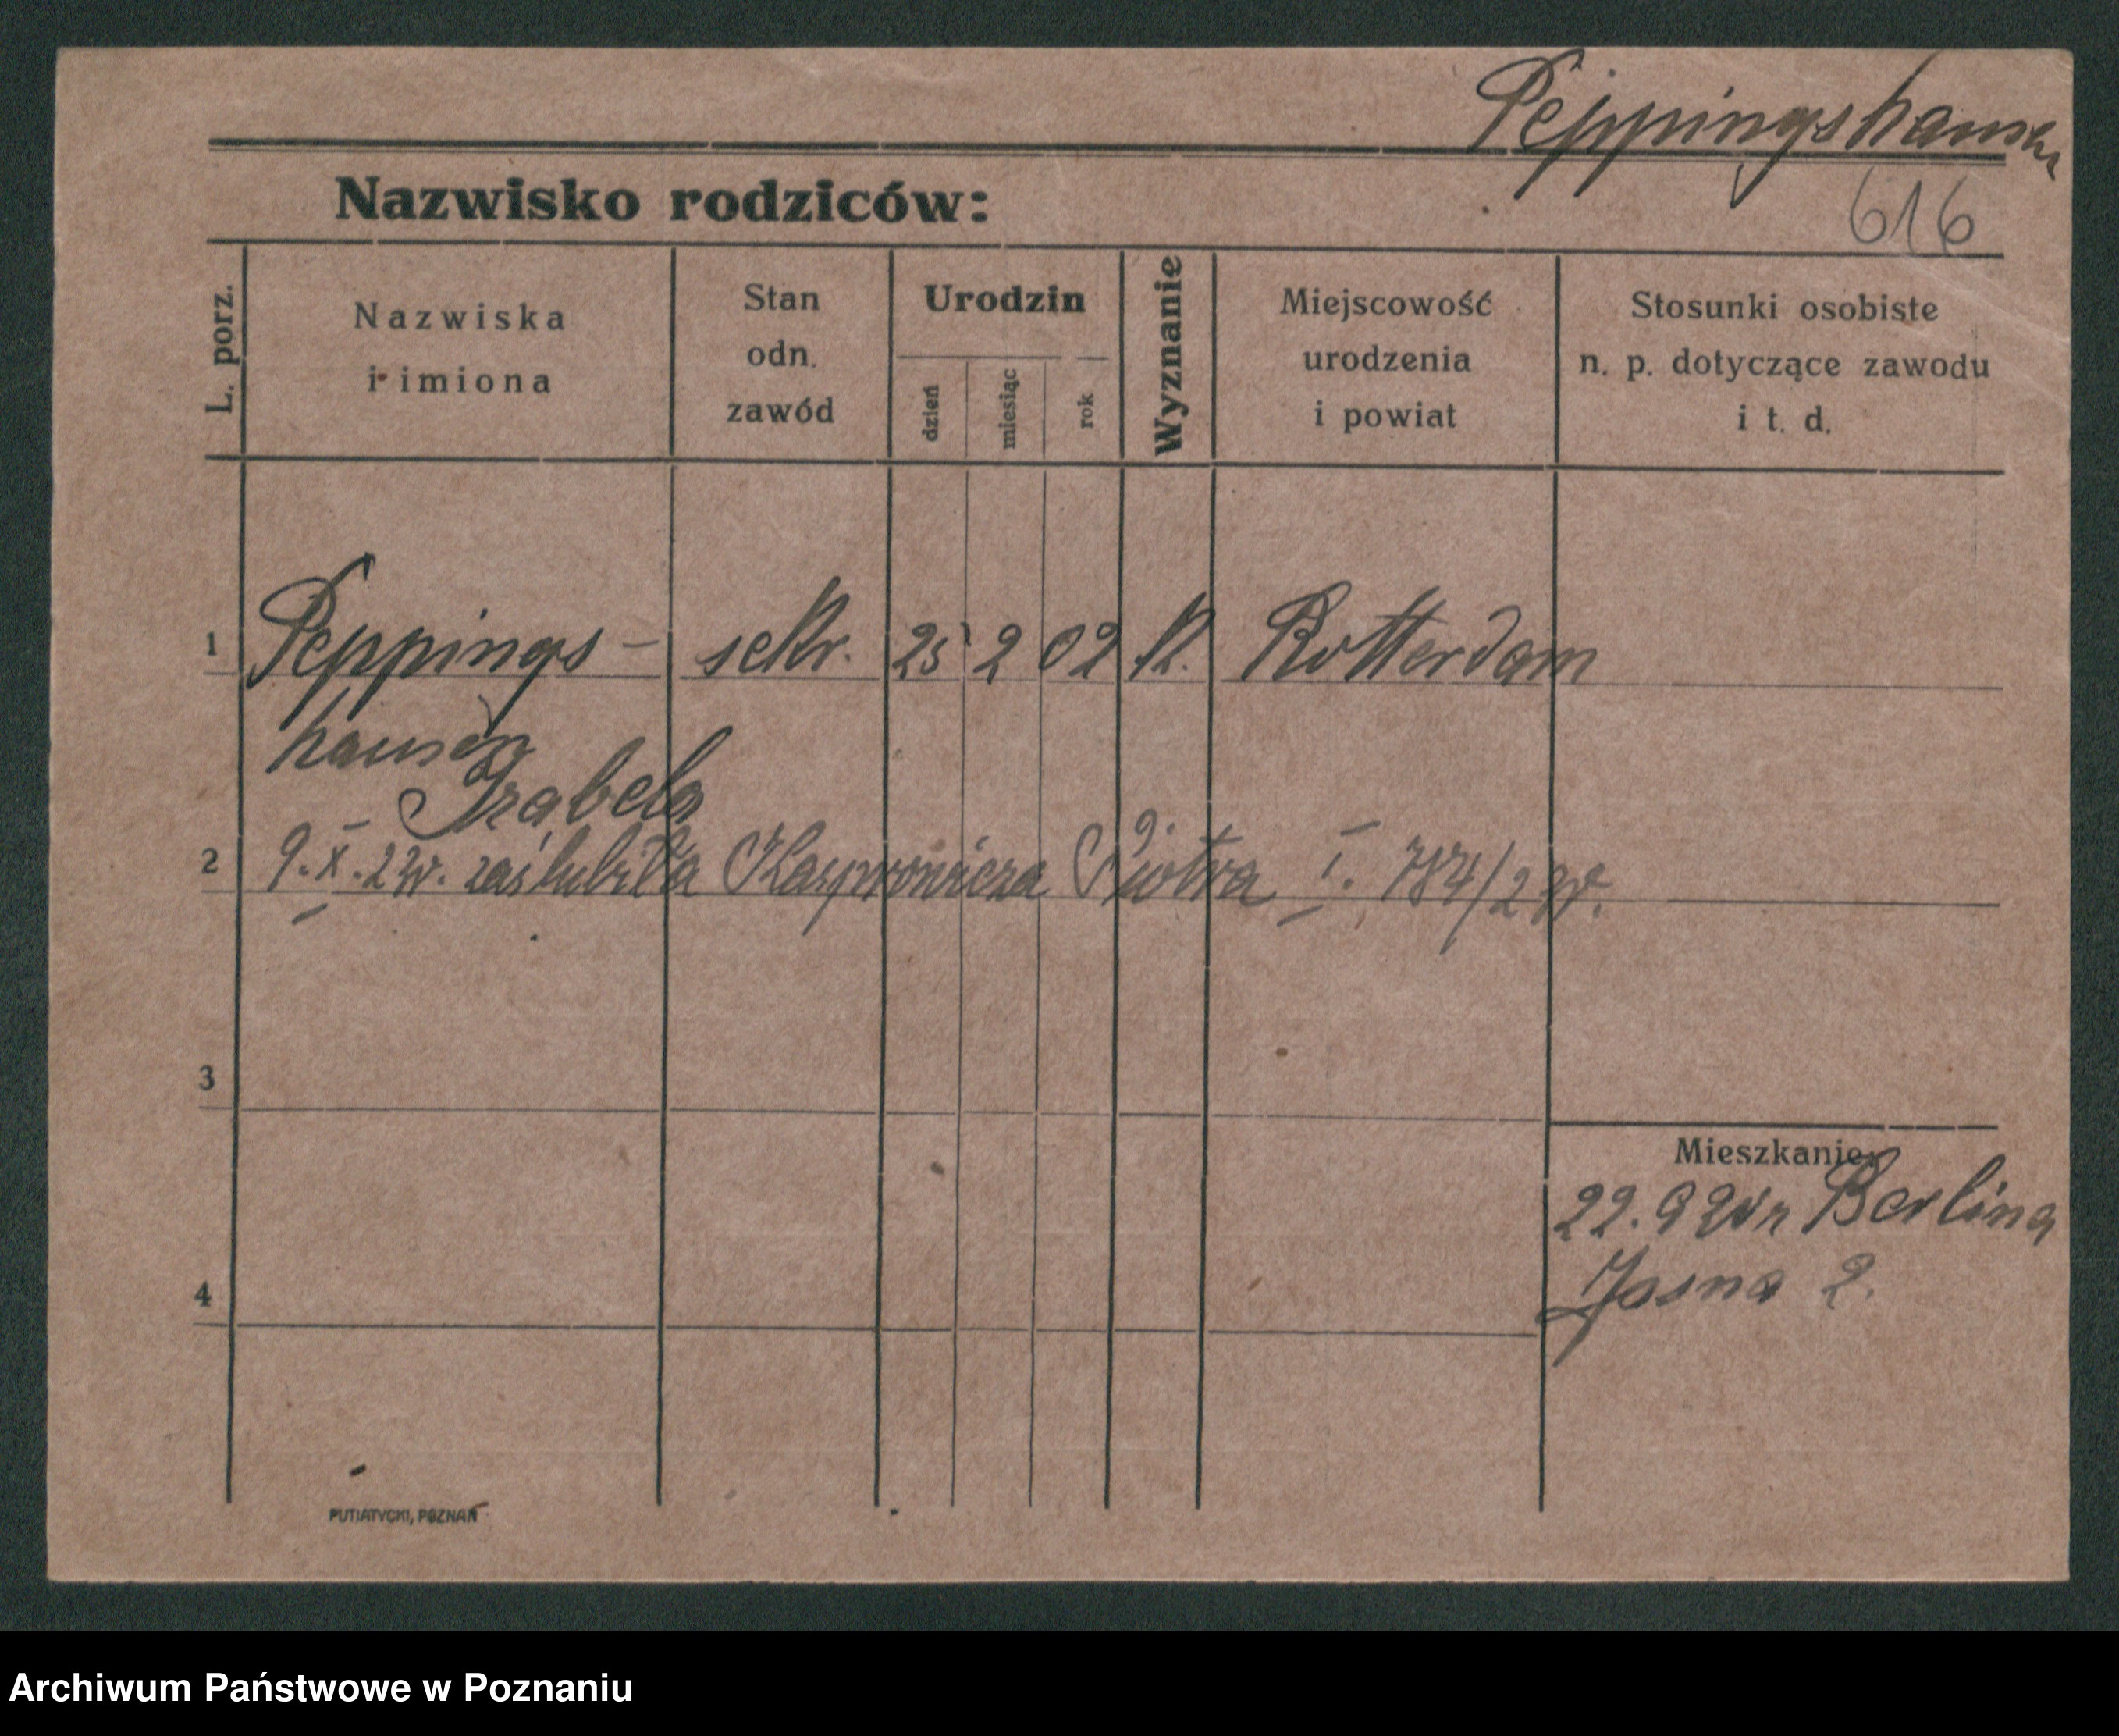 Peppingshausen
616
Nazwisko rodziców:
L. porz.
Nazwiska
i imiona
Stan
odn.
zawód
Urodzin
dzień
miesiąc
rok
Wyznanie
Miejscowość
urodzenia
i powiat
Stosunki osobiste
n. p. dotyczące zawodu
i t. d.
1 Peppings- sekr. 25 2 02 K. Rotterdam
hausen
Izabela
2 9. X. zaślubiła Kasprowicza Piotra I.
3
Mieszkanie:
22. 9 Berlina
4
Jasna 2.
PUTIATYCKI, POZNAŃ
Archiwum Państwowe w Poznaniu